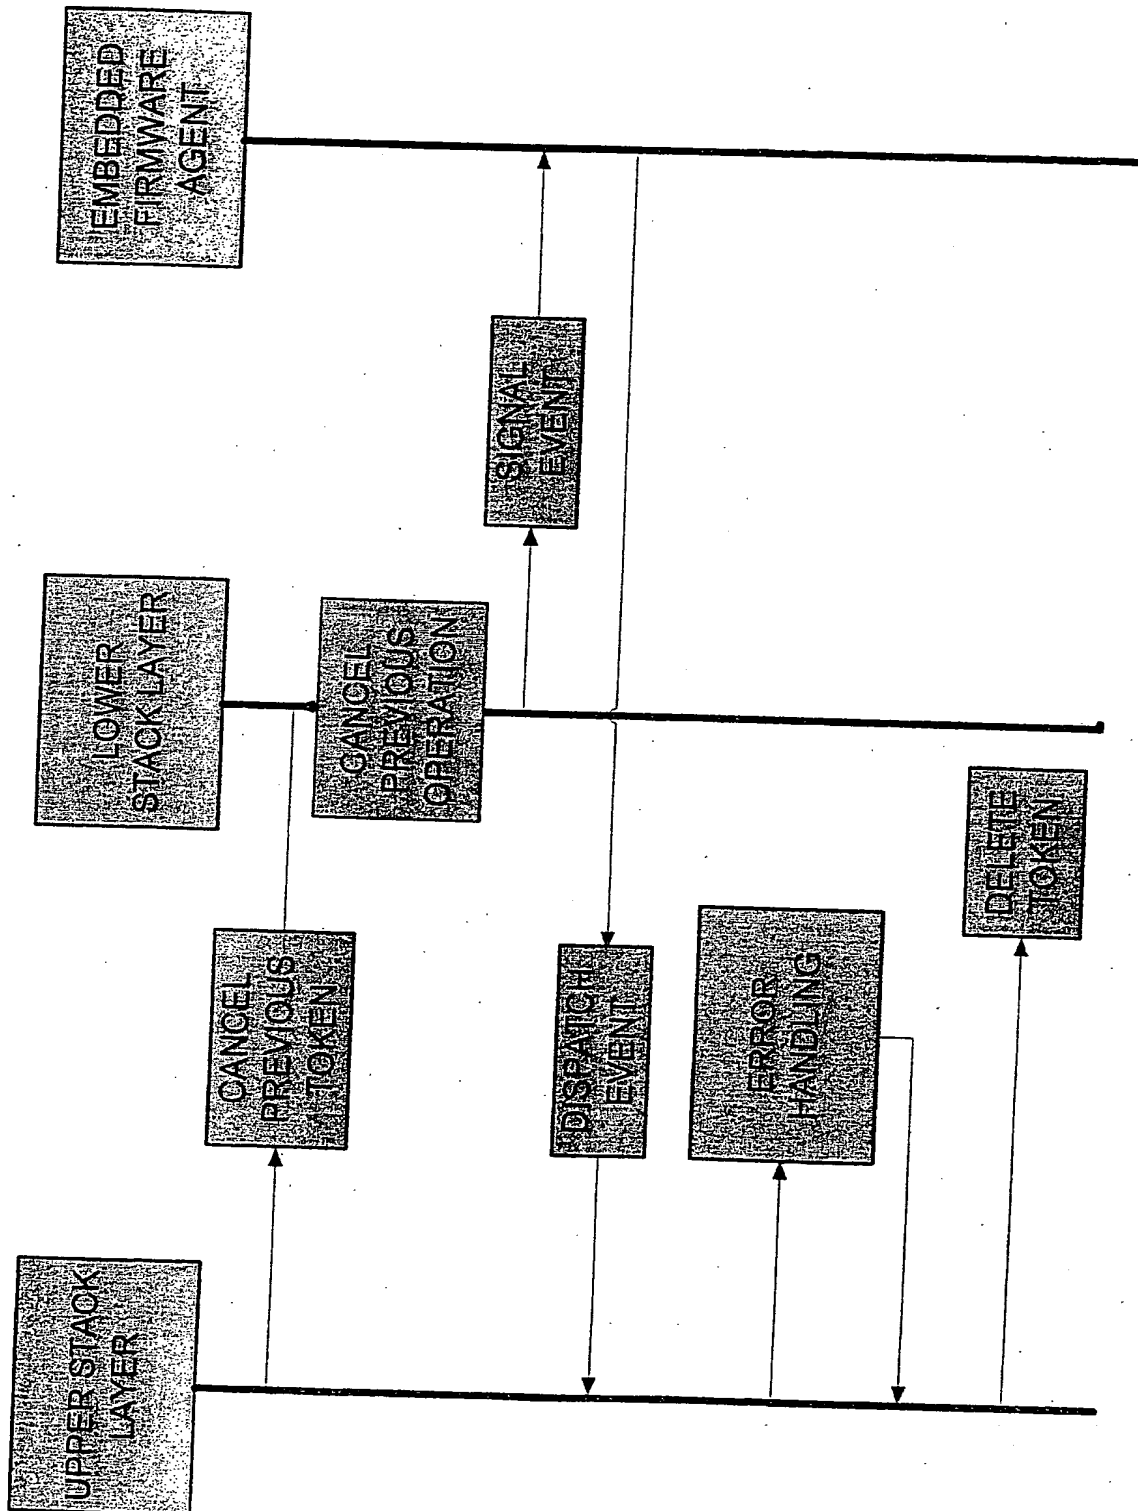 UPPER STACK
LAYER
LOWER
STACK LAYER
EMBEDDED
FIRMWARE
AGENT
CANCEL
PREVIOUS
TOKEN
CANCEL
PREVIOUS
OPERATION
SIGNAL
EVENT
DISPATCH
EVENT
ERROR
HANDLING
DELETE
TOKEN